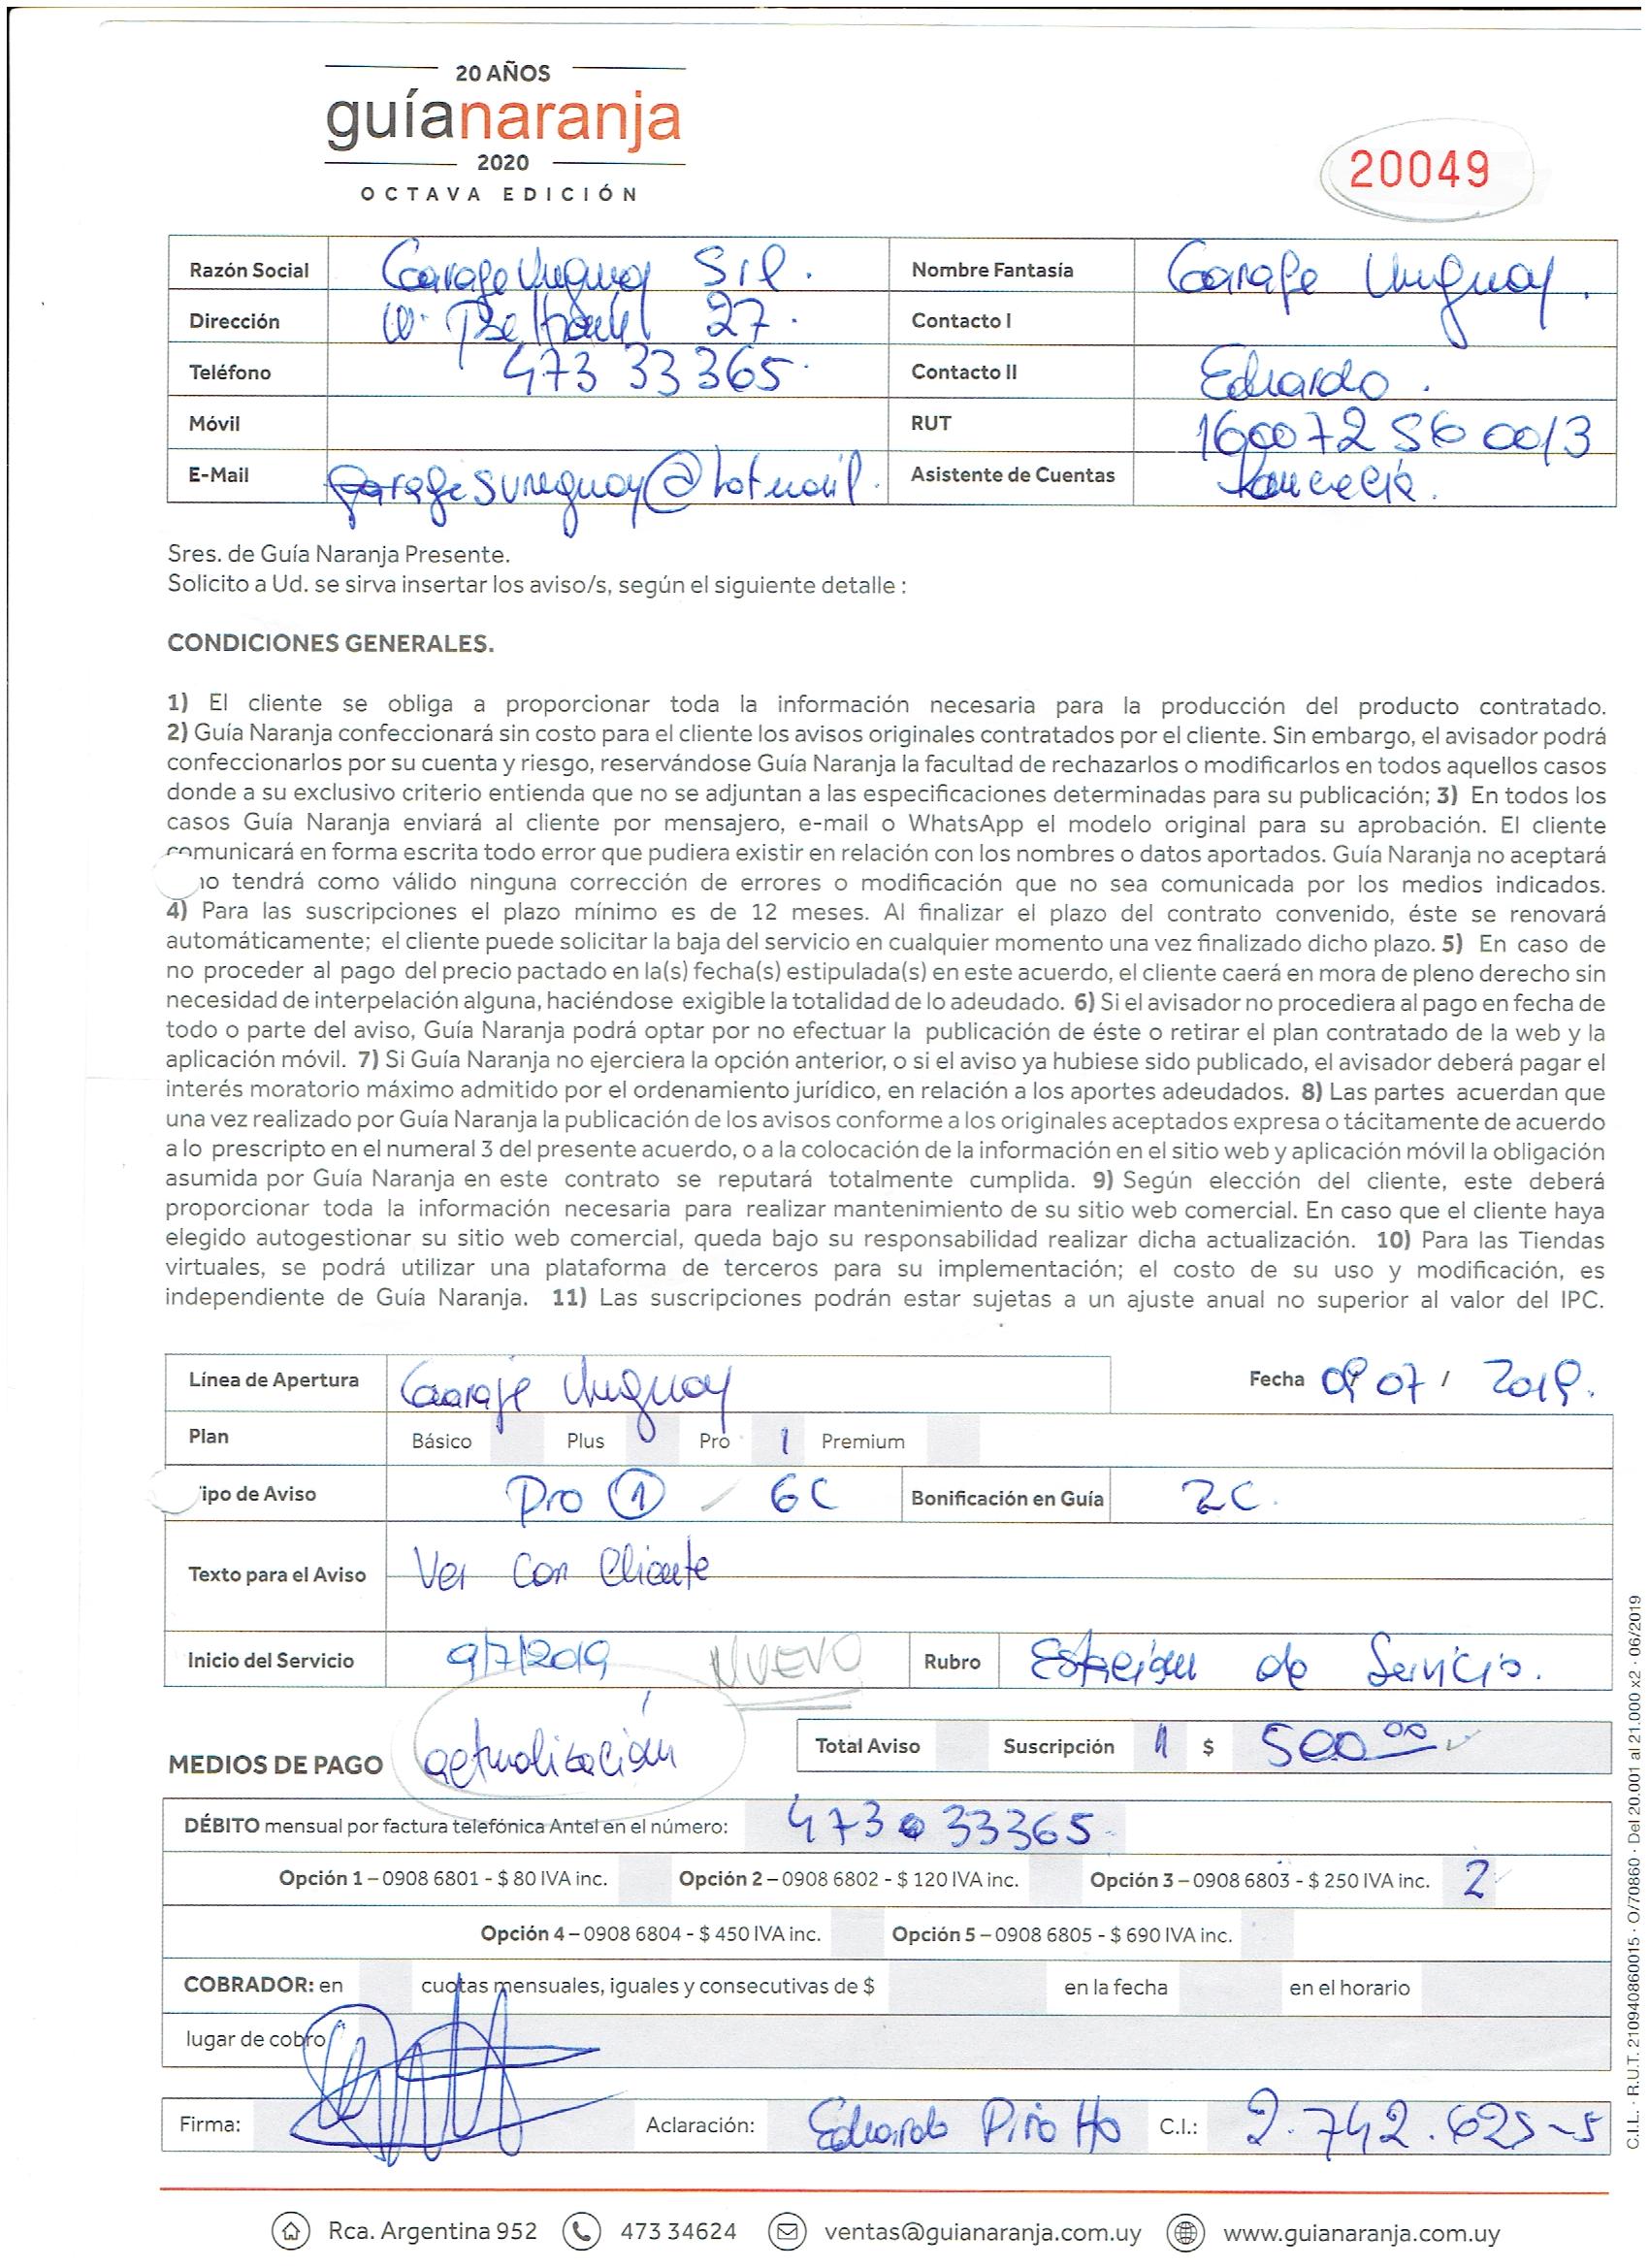 20 AÑOS
guíanaranja
2020
OCTAVA EDICIÓN
20049
Razón Social Garage Uruguay Srl. Nombre Fantasía Garage Uruguay.
Dirección W. Beltrán 27. Contacto I
Teléfono 473 33365. Contacto II Eduardo.
Móvil RUT 160072560013
E-Mail garagesuruguay@hotmail. Asistente de Cuentas
Sres. de Guía Naranja Presente.
Solicito a Ud. se sirva insertar los aviso/s, según el siguiente detalle :
CONDICIONES GENERALES.
1) El cliente se obliga a proporcionar toda la información necesaria para la producción del producto contratado.
2) Guía Naranja confeccionará sin costo para el cliente los avisos originales contratados por el cliente. Sin embargo, el avisador podrá
confeccionarlos por su cuenta y riesgo, reservándose Guía Naranja la facultad de rechazarlos o modificarlos en todos aquellos casos
donde a su exclusivo criterio entienda que no se adjuntan a las especificaciones determinadas para su publicación; 3) En todos los
casos Guía Naranja enviará al cliente por mensajero, e-mail o WhatsApp el modelo original para su aprobación. El cliente
comunicará en forma escrita todo error que pudiera existir en relación con los nombres o datos aportados. Guía Naranja no aceptará
no tendrá como válido ninguna corrección de errores o modificación que no sea comunicada por los medios indicados.
4) Para las suscripciones el plazo mínimo es de 12 meses. Al finalizar el plazo del contrato convenido, éste se renovará
automáticamente; el cliente puede solicitar la baja del servicio en cualquier momento una vez finalizado dicho plazo. 5) En caso de
no proceder al pago del precio pactado en la(s) fecha(s) estipulada(s) en este acuerdo, el cliente caerá en mora de pleno derecho sin
necesidad de interpelación alguna, haciéndose exigible la totalidad de lo adeudado. 6) Si el avisador no procediera al pago en fecha de
todo o parte del aviso, Guía Naranja podrá optar por no efectuar la publicación de éste o retirar el plan contratado de la web y la
aplicación móvil. 7) Si Guía Naranja no ejerciera la opción anterior, o si el aviso ya hubiese sido publicado, el avisador deberá pagar el
interés moratorio máximo admitido por el ordenamiento jurídico, en relación a los aportes adeudados. 8) Las partes acuerdan que
una vez realizado por Guía Naranja la publicación de los avisos conforme a los originales aceptados expresa o tácitamente de acuerdo
a lo prescripto en el numeral 3 del presente acuerdo, o a la colocación de la información en el sitio web y aplicación móvil la obligación
asumida por Guía Naranja en este contrato se reputará totalmente cumplida. 9) Según elección del cliente, este deberá
proporcionar toda la información necesaria para realizar mantenimiento de su sitio web comercial. En caso que el cliente haya
elegido autogestionar su sitio web comercial, queda bajo su responsabilidad realizar dicha actualización. 10) Para las Tiendas
virtuales, se podrá utilizar una plataforma de terceros para su implementación; el costo de su uso y modificación, es
independiente de Guía Naranja. 11) Las suscripciones podrán estar sujetas a un ajuste anual no superior al valor del IPC.
Línea de Apertura Garaje Uruguay Fecha 09 07 / 2019.
Plan Básico Plus Pro 1 Premium
Tipo de Aviso Pro 1 6C Bonificación en Guía 2C.
Texto para el Aviso Ver con Cliente
Inicio del Servicio 9/7/2019 NUEVO Rubro Estación de Servicio.
MEDIOS DE PAGO actualización Total Aviso Suscripción 1 $ 500 00
DÉBITO mensual por factura telefónica Antel en el número: 473 33365
Opción 1 – 0908 6801 - $ 80 IVA inc. Opción 2 – 0908 6802 - $ 120 IVA inc. Opción 3 – 0908 6803 - $ 250 IVA inc. 2
Opción 4 – 0908 6804 - $ 450 IVA inc. Opción 5 – 0908 6805 - $ 690 IVA inc.
COBRADOR: en cuotas mensuales, iguales y consecutivas de $ en la fecha en el horario
lugar de cobro
Firma: Aclaración: Eduardo Pirotto C.I.: 2.742.625-5
Rca. Argentina 952 473 34624 ventas@guianaranja.com.uy www.guianaranja.com.uy
C.I.L. · R.U.T. 210940860015 · O/70860 · Del 20.001 al 21.000 x2 · 06/2019